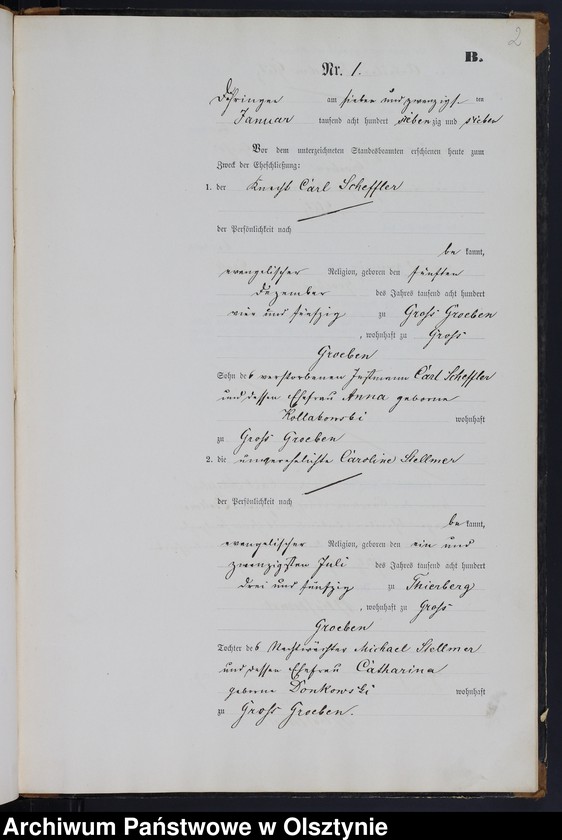 2
B.
Nr. 1.
Döhringen am sieben und zwanzigsten
Januar tausend acht hundert siebenzig und sieben
Vor dem unterzeichneten Standesbeamten erschienen heute zum
Zweck der Eheschließung:
1. der Knecht Carl Scheffler
der Persönlichkeit nach
be kannt,
evangelischer Religion, geboren den fünften
Dezember des Jahres tausend acht hundert
vier und fünfzig zu Gross Groeben
, wohnhaft zu Gross
Groeben
Sohn des verstorbenen Instmann Carl Scheffler
und dessen Ehefrau Anna geborne
Kollakowski wohnhaft
zu Gross Groeben
2. die unverehelichte Caroline Stellmer
der Persönlichkeit nach
be kannt,
evangelischer Religion, geboren den ein und
zwanzigsten Juli des Jahres tausend acht hundert
drei und fünfzig zu Thierberg
, wohnhaft zu Gross
Groeben
Tochter des Nachtwächter Michael Stellmer
und dessen Ehefrau Catharina
geborne Donkowski wohnhaft
zu Gross Groeben.
Archiwum Państwowe w Olsztynie